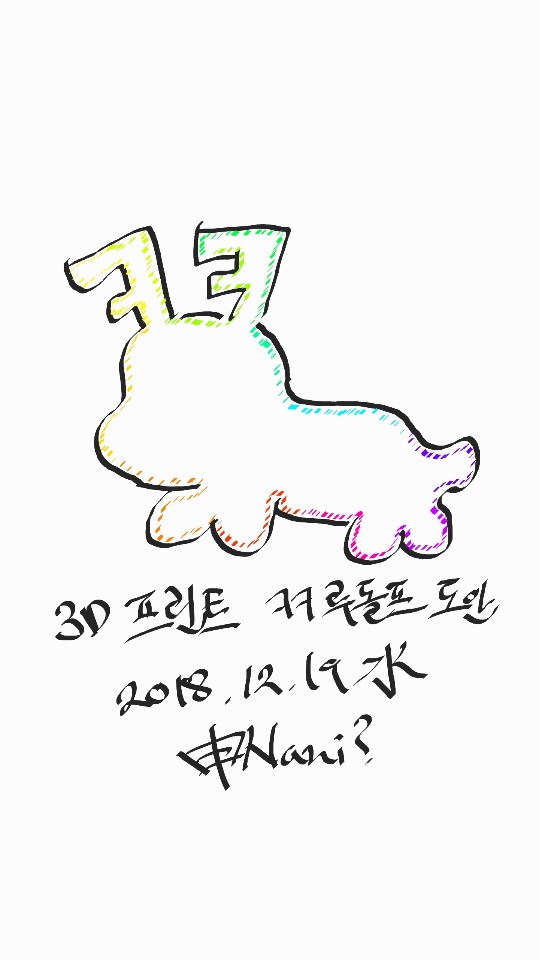 ㅋㅋ
3D 프린트 ㅋㅋ루돌프 도안
2018.12.19 水
申Nani?